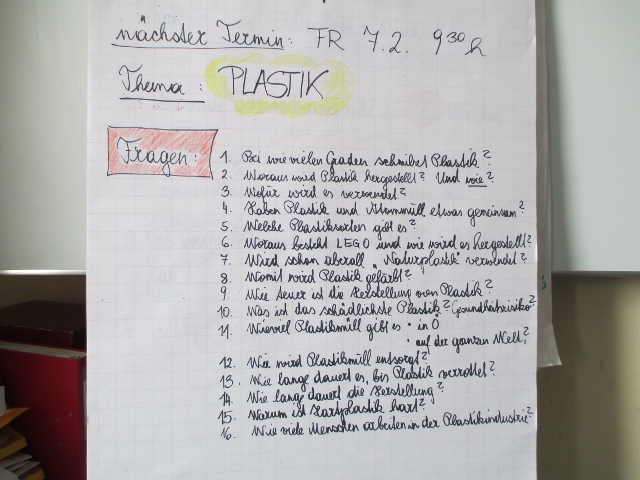 nächster Termin: FR 7.2. 9³⁰ h
Thema: PLASTIK
Fragen:
1. Bei wie vielen Graden schmilzt Plastik?
2. Woraus wird Plastik hergestellt? Und wie?
3. Wofür wird es verwendet?
4. Haben Plastik und Atommüll etwas gemeinsam?
5. Welche Plastiksorten gibt es?
6. Woraus besteht LEGO und wie wird es hergestellt?
7. Wird schon überall "Naturplastik" verwendet?
8. Womit wird Plastik gefärbt?
9. Wie teuer ist die Herstellung von Plastik?
10. Was ist das schädlichste Plastik? Gesundheitsrisiko?
11. Wieviel Plastikmüll gibt es • in Ö
• auf der ganzen Welt?
12. Wie wird Plastikmüll entsorgt?
13. Wie lange dauert es, bis Plastik verrottet?
14. Wie lange dauert die Herstellung?
15. Warum ist Hartplastik hart?
16. Wie viele Menschen arbeiten in der Plastikindustrie?